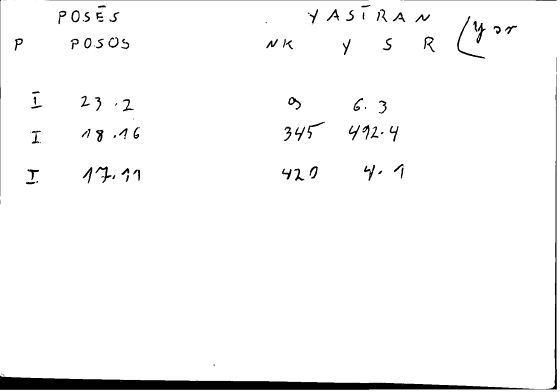 POSĒS YASĪRAN
P POSOS NK Y S R (y sr
I 23.2 9 6.3
I 18.16 345 492.4
I 17.11 420 4.1